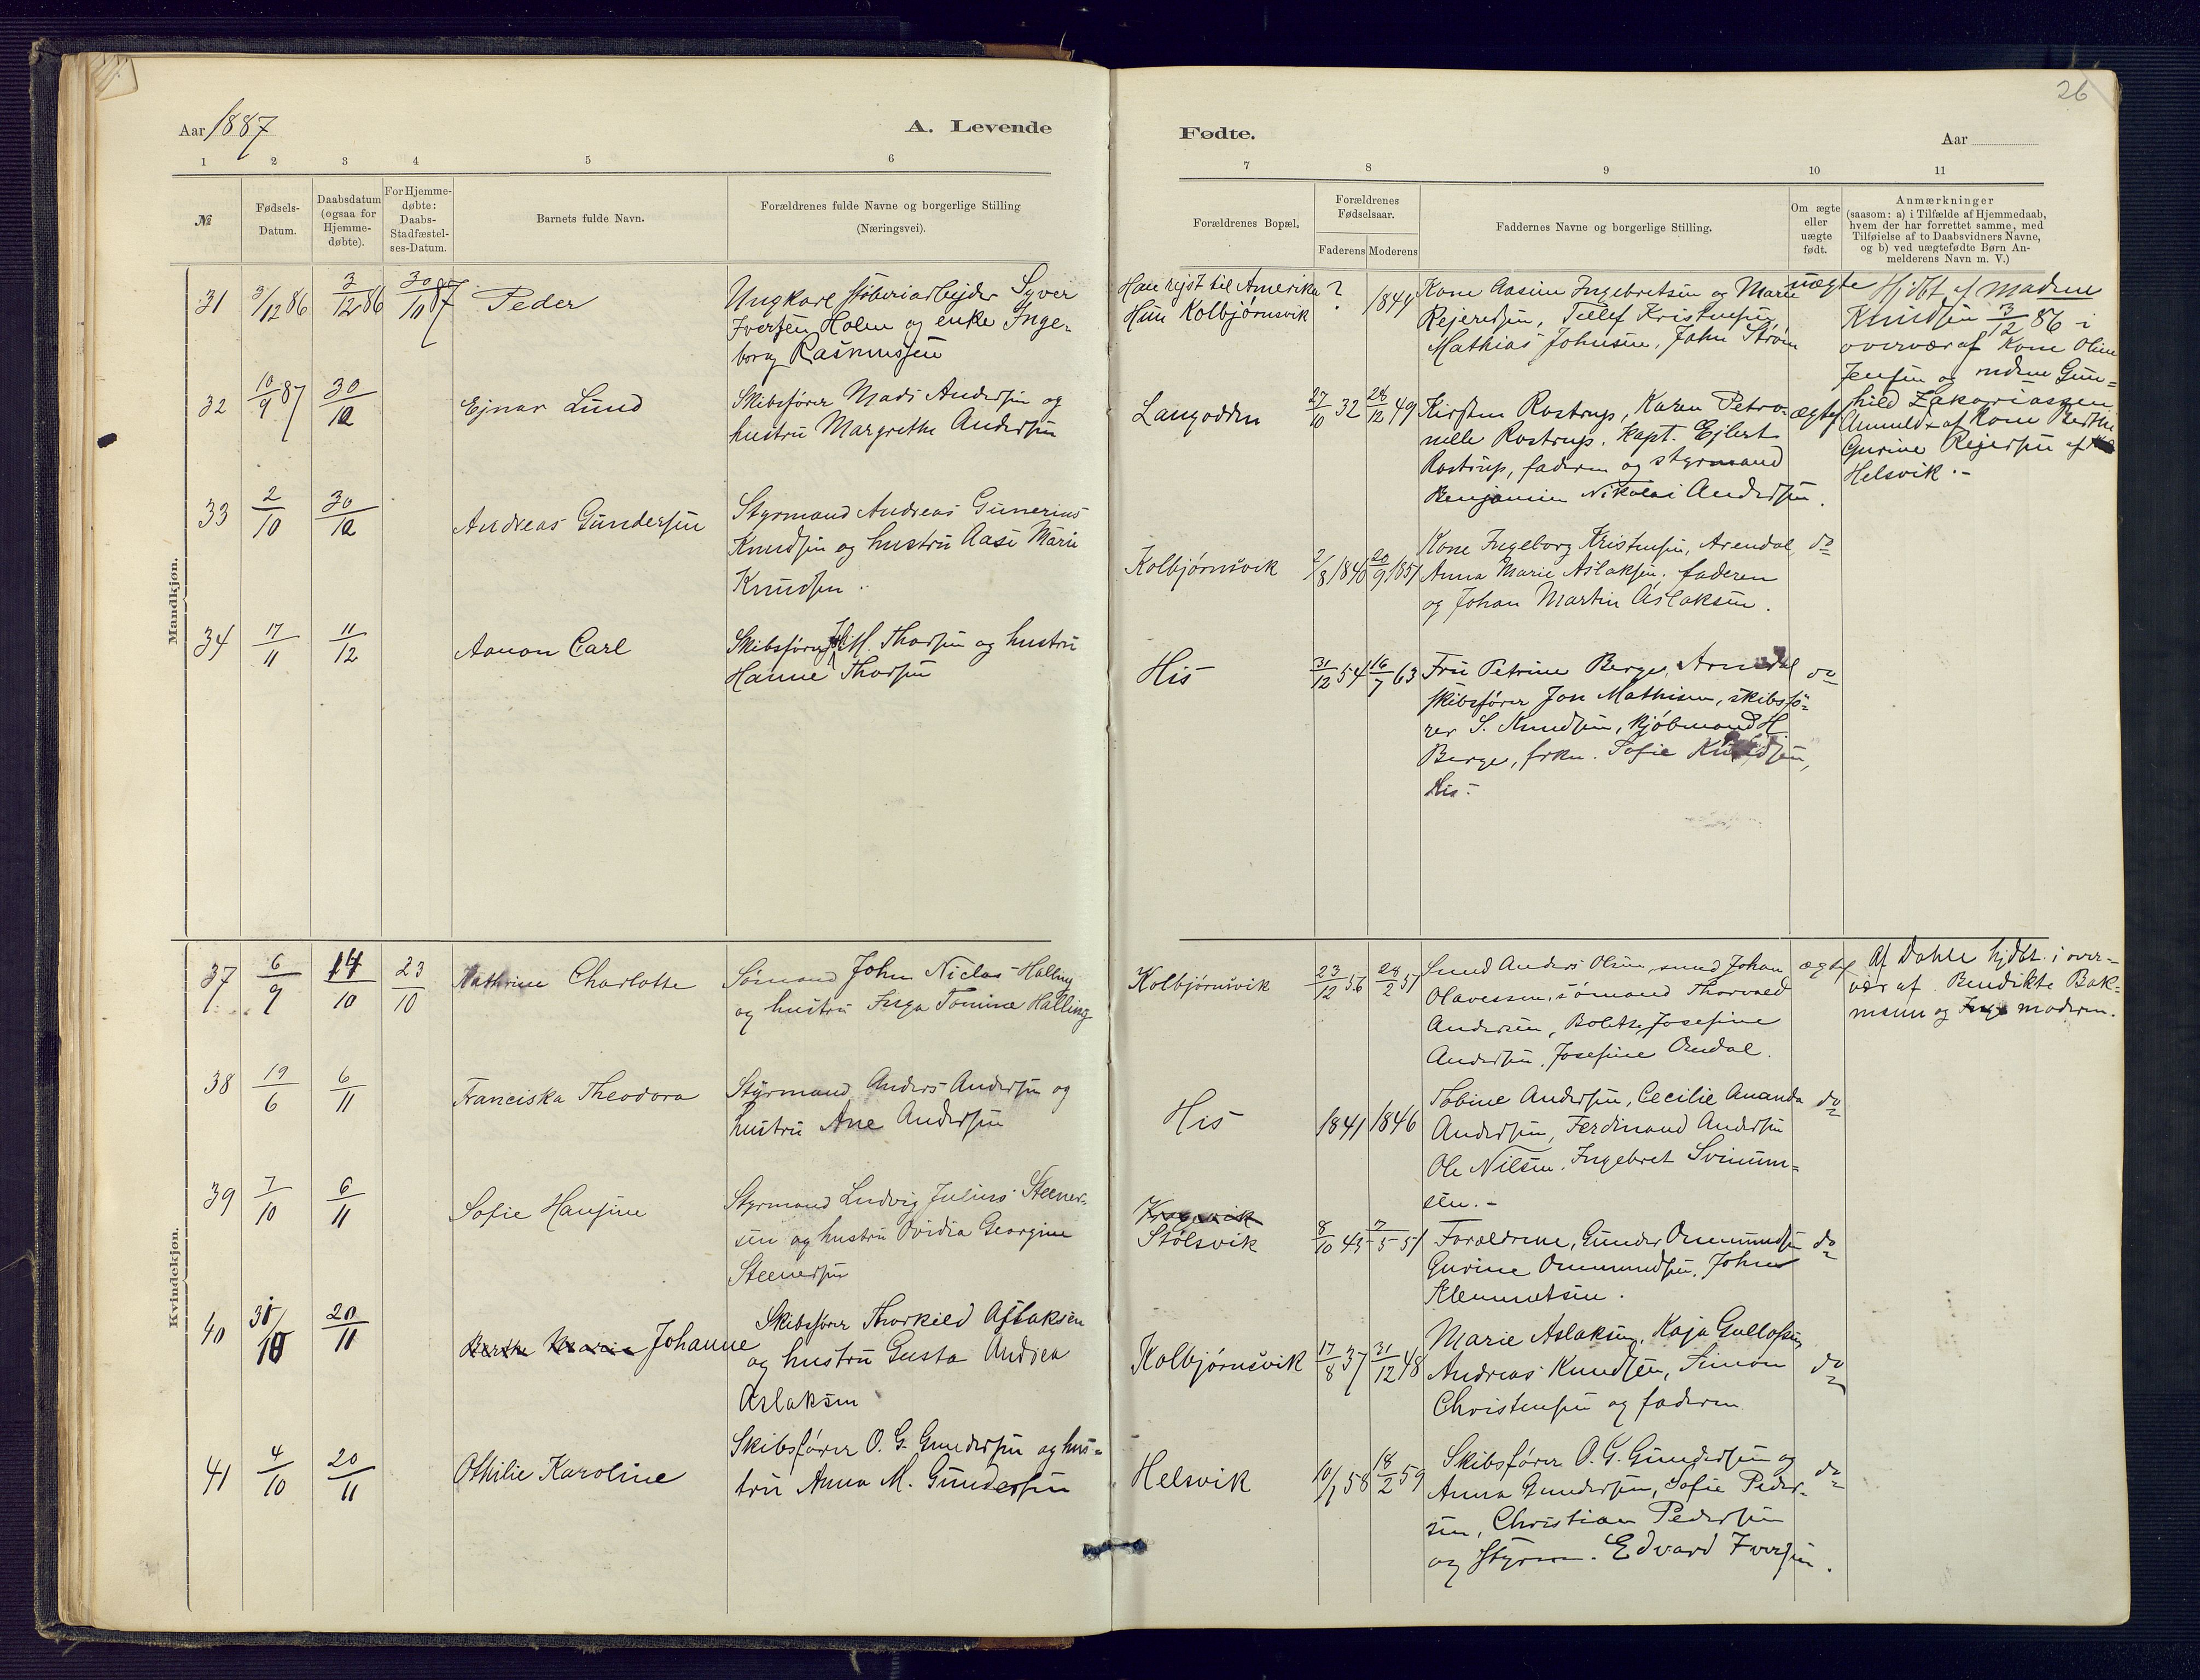 26
Aar 1887
A. Levende
Fødte.
Aar
1 2 3 4 5 6
7 8 9 10 11
№
Fødsels-
Datum.
Daabsdatum
(ogsaa for
Hjemme-
døbte).
For Hjemme-
døbte:
Daabs-
Stadfæstel-
ses-Datum.
Barnets fulde Navn.
Forældrenes fulde Navne og borgerlige Stilling
(Næringsvei).
Forældrenes Bopæl.
Forældrenes
Fødselsaar.
Faderens Moderens
Faddernes Navne og borgerlige Stilling.
Om ægte
eller
uægte
født.
Anmærkninger
(saasom: a) i Tilfælde af Hjemmedaab,
hvem der har forrettet samme, med
Tilføielse af to Daabsvidners Navne,
og b) ved uægtefødte Børn An-
melderens Navn m. V.)
Mandkjøn.
31 3/12 86 3/12 86 30/10 87 Peder
Ungkarl støberiarbejder Syver
Iversen Holm og enke Inge-
borg Rasmussen
Han rejst til Amerika
Hun Kolbjørnsvik
? 1844
Kone Aasine Ingebretsen og Marie
Rejersen, Tellef Kristensen,
Mathias Johnsen, John Strøm
uægte
Hjdbt. af Madme
Knudsen 3/12 86 i
overvær af Kone Oline
Jensen og mdme Gun-
hild Zakariassen
Anmeldt af Kone Berthe
Gurine Rejersen af
Helsvik.-
32 10/9 87 30/10 Ejnar Lund
Skibsfører Mads Andersen og
hustru Margrethe Andersen
Langodden
27/10 32 28/12 49
Kirsten Rostrup, Karen Petro-
nelle Rostrup. Kapt. Ejlert
Rostrup, faderen og styrmand
Benjamin Nikolai Andersen.
ægte
33 2/10 30/10 Andreas Gundersen
Styrmand Andreas Gunerius
Knudsen og hustru Aase Marie
Knudsen.
Kolbjørnsvik
2/8 1846 20/9 1851
Kone Ingeborg Kristensen, Arendal,
Anna Marie Aslaksen, faderen
og Johan Martin Aslaksen.
do
34 17/11 11/12 Aanon Carl
Skibsfører M. Thorsen og hustru
Hanne Thorsen
His
31/12 54 16/7 63
Fru Petrine Berge, Arendal
skibsfører Jon Mathisen, skibsfø-
rer S. Knudsen, kjøbmand H.
Berge, frkn. Sofie Knudsen,
His.
do
Kvindekjøn.
37 6/9 14/10 23/10 Kathrine Charlotte
Sømand John Niclas Halling
og hustru Inga Tomine Halling
Kolbjørnsvik
23/12 56 28/2 57
Smed Anders Olsen, smed Johan
Olavessen, sømand Thorvald
Andersen, Bolette Josefine
Andersen, Josefine Omdal.
ægte
Af Dahle hjdbt. i over-
vær af Bendikte Bak-
mann og moderen.
38 19/6 6/11 Franciska Theodora
Styrmand Anders Andersen og
hustru Ane Andersen
His
1841 1846
Tobine Andersen, Cecilie Amanda
Andersen, Ferdinand Andersen
Ole Nilsen, Ingebret Svinum-
sen.-
do
39 7/10 6/11 Sofie Hansine
Styrmand Ludvig Julius Steener-
sen og hustru Ovidia Georgine
Steenersen
Stølsvik
8/10 45 7/5 51
Forældrene, Gunder Ommundsen
Gurine Ommundsen, John
Klemmetsen.
do
40 31/10 20/11 Berthe Marie Johanne
Skibsfører Thorkild Aslaksen
og hustru Gusta Andrea
Aslaksen
Kolbjørnsvik
17/8 37 31/12 48
Marie Aslaksen, Kaja Gullofsen,
Andreas Knudsen, Simon
Christensen og faderen
do
41 4/10 20/11 Othilie Karoline
Skibsfører O. G. Gundersen og hus-
tru Anna M. Gundersen
Helsvik
10/1 58 18/2 59
Skibsfører O. G. Gundersen og
Anna Gundersen, Sofie Peder-
sen, Christian Pedersen
og Styrm. Edvard Iversen.
do